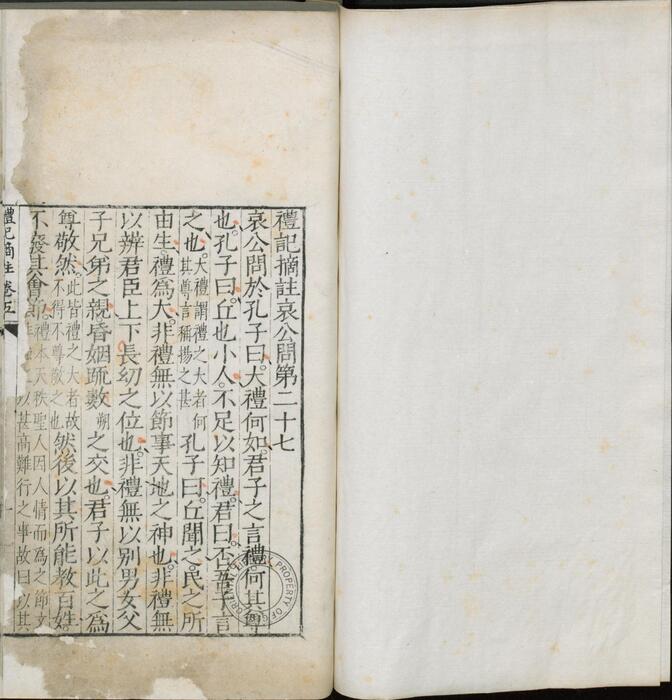 禮記摘註哀公問第二十七
哀公問於孔子曰大禮何如君子之言禮何其尊
也孔子曰丘也小人不足以知禮君曰否吾子言
之也大禮謂禮之大者何其尊言稱揚之甚孔子曰丘聞之民之所
由生禮為大非禮無以節事天地之神也非禮無
以辨君臣上下長幼之位也非禮無以別男女父
子兄弟之親昏姻疏數朔之交也君子以此之為
尊敬然此皆禮之大者故不得不尊敬之也然後以其所能教百姓
不廢其會節禮本天秩聖人因人情而為之節文以甚高難行之事故曰以其
禮記摘註卷五
PROPERTY OF